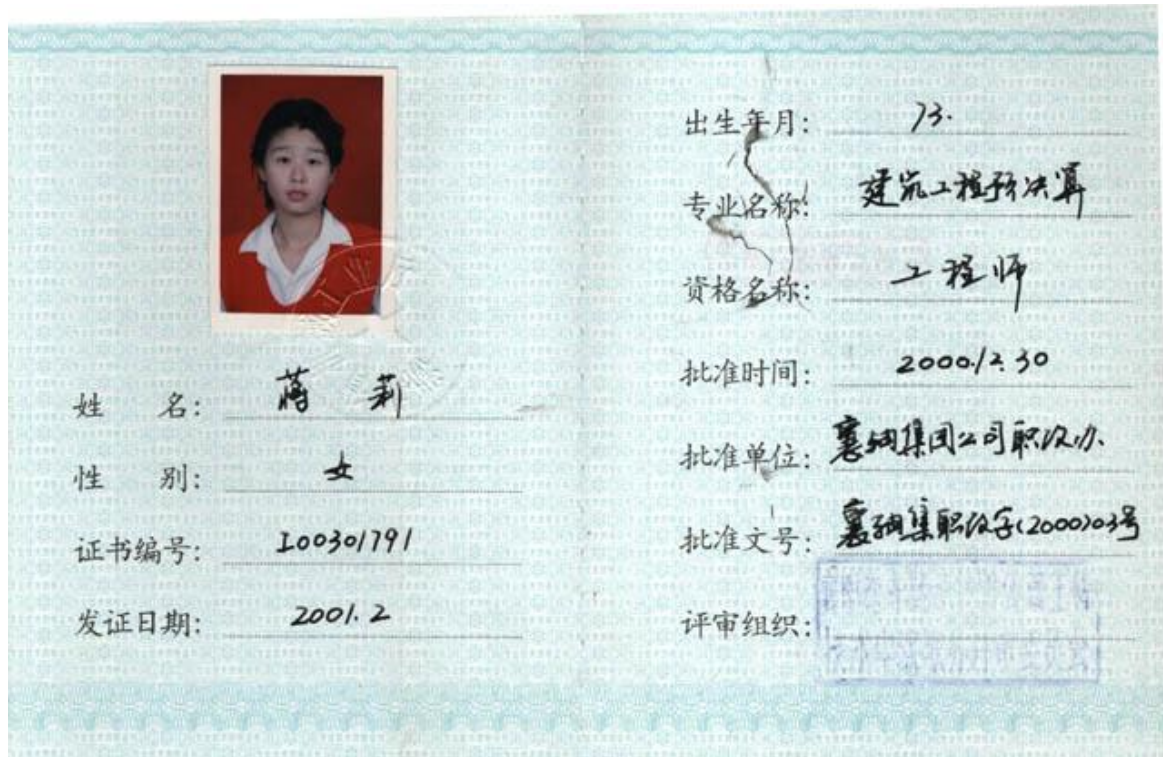 姓 名: 蒋 莉
性 别: 女
证书编号: I00301791
发证日期: 2001.2
出生年月: 73.
专业名称: 建筑工程预决算
资格名称: 工程师
批准时间: 2000.12.30
批准单位: 集团公司职改办.
批准文号: 集职改字(2000)03号
评审组织: